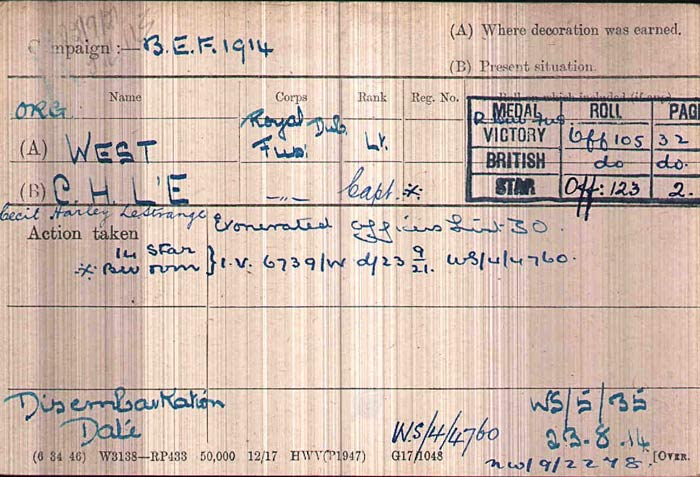 (A) Where decoration was earned.
Campaign :— B.E.F. 1914
(B) Present situation.
Name Corps Rank Reg. No. Roll on which included (if any)
MEDAL ROLL PAGE
ORG. Royal Dub. R. Dub. Fus
(A) WEST Fus. Lt. VICTORY Off 105 32
BRITISH do do.
(B) C. H. L'E —"— Capt. ※ STAR Off: 123 2.
Cecil Harley LeStrange
Action taken Exonerated Officers List 30.
14 Star
※ BW &VM } I.V. 6739/W d/23 9/21. WS/4/4760.
Disembarkation WS/5/35
Date W.S/4/4760 23.8.14
(6 34 46) W3138—RP433 50,000 12/17 HWV(P1947) G17/1048 [OVER.
NW/9/2278.